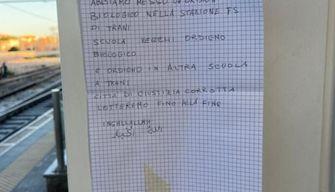 ABBIAMO MESSO ORDIGNO
BIOLOGICO NELLA STAZIONE FS
DI TRANI
SCUOLA ORDIGNO
BIOLOGICO
E ORDIGNO IN ALTRA SCUOLA
A TRANI
CITTÀ DI GIUSTIZIA CORROTTA
LOTTEREMO FINO ALLA FINE
INSHALLAH